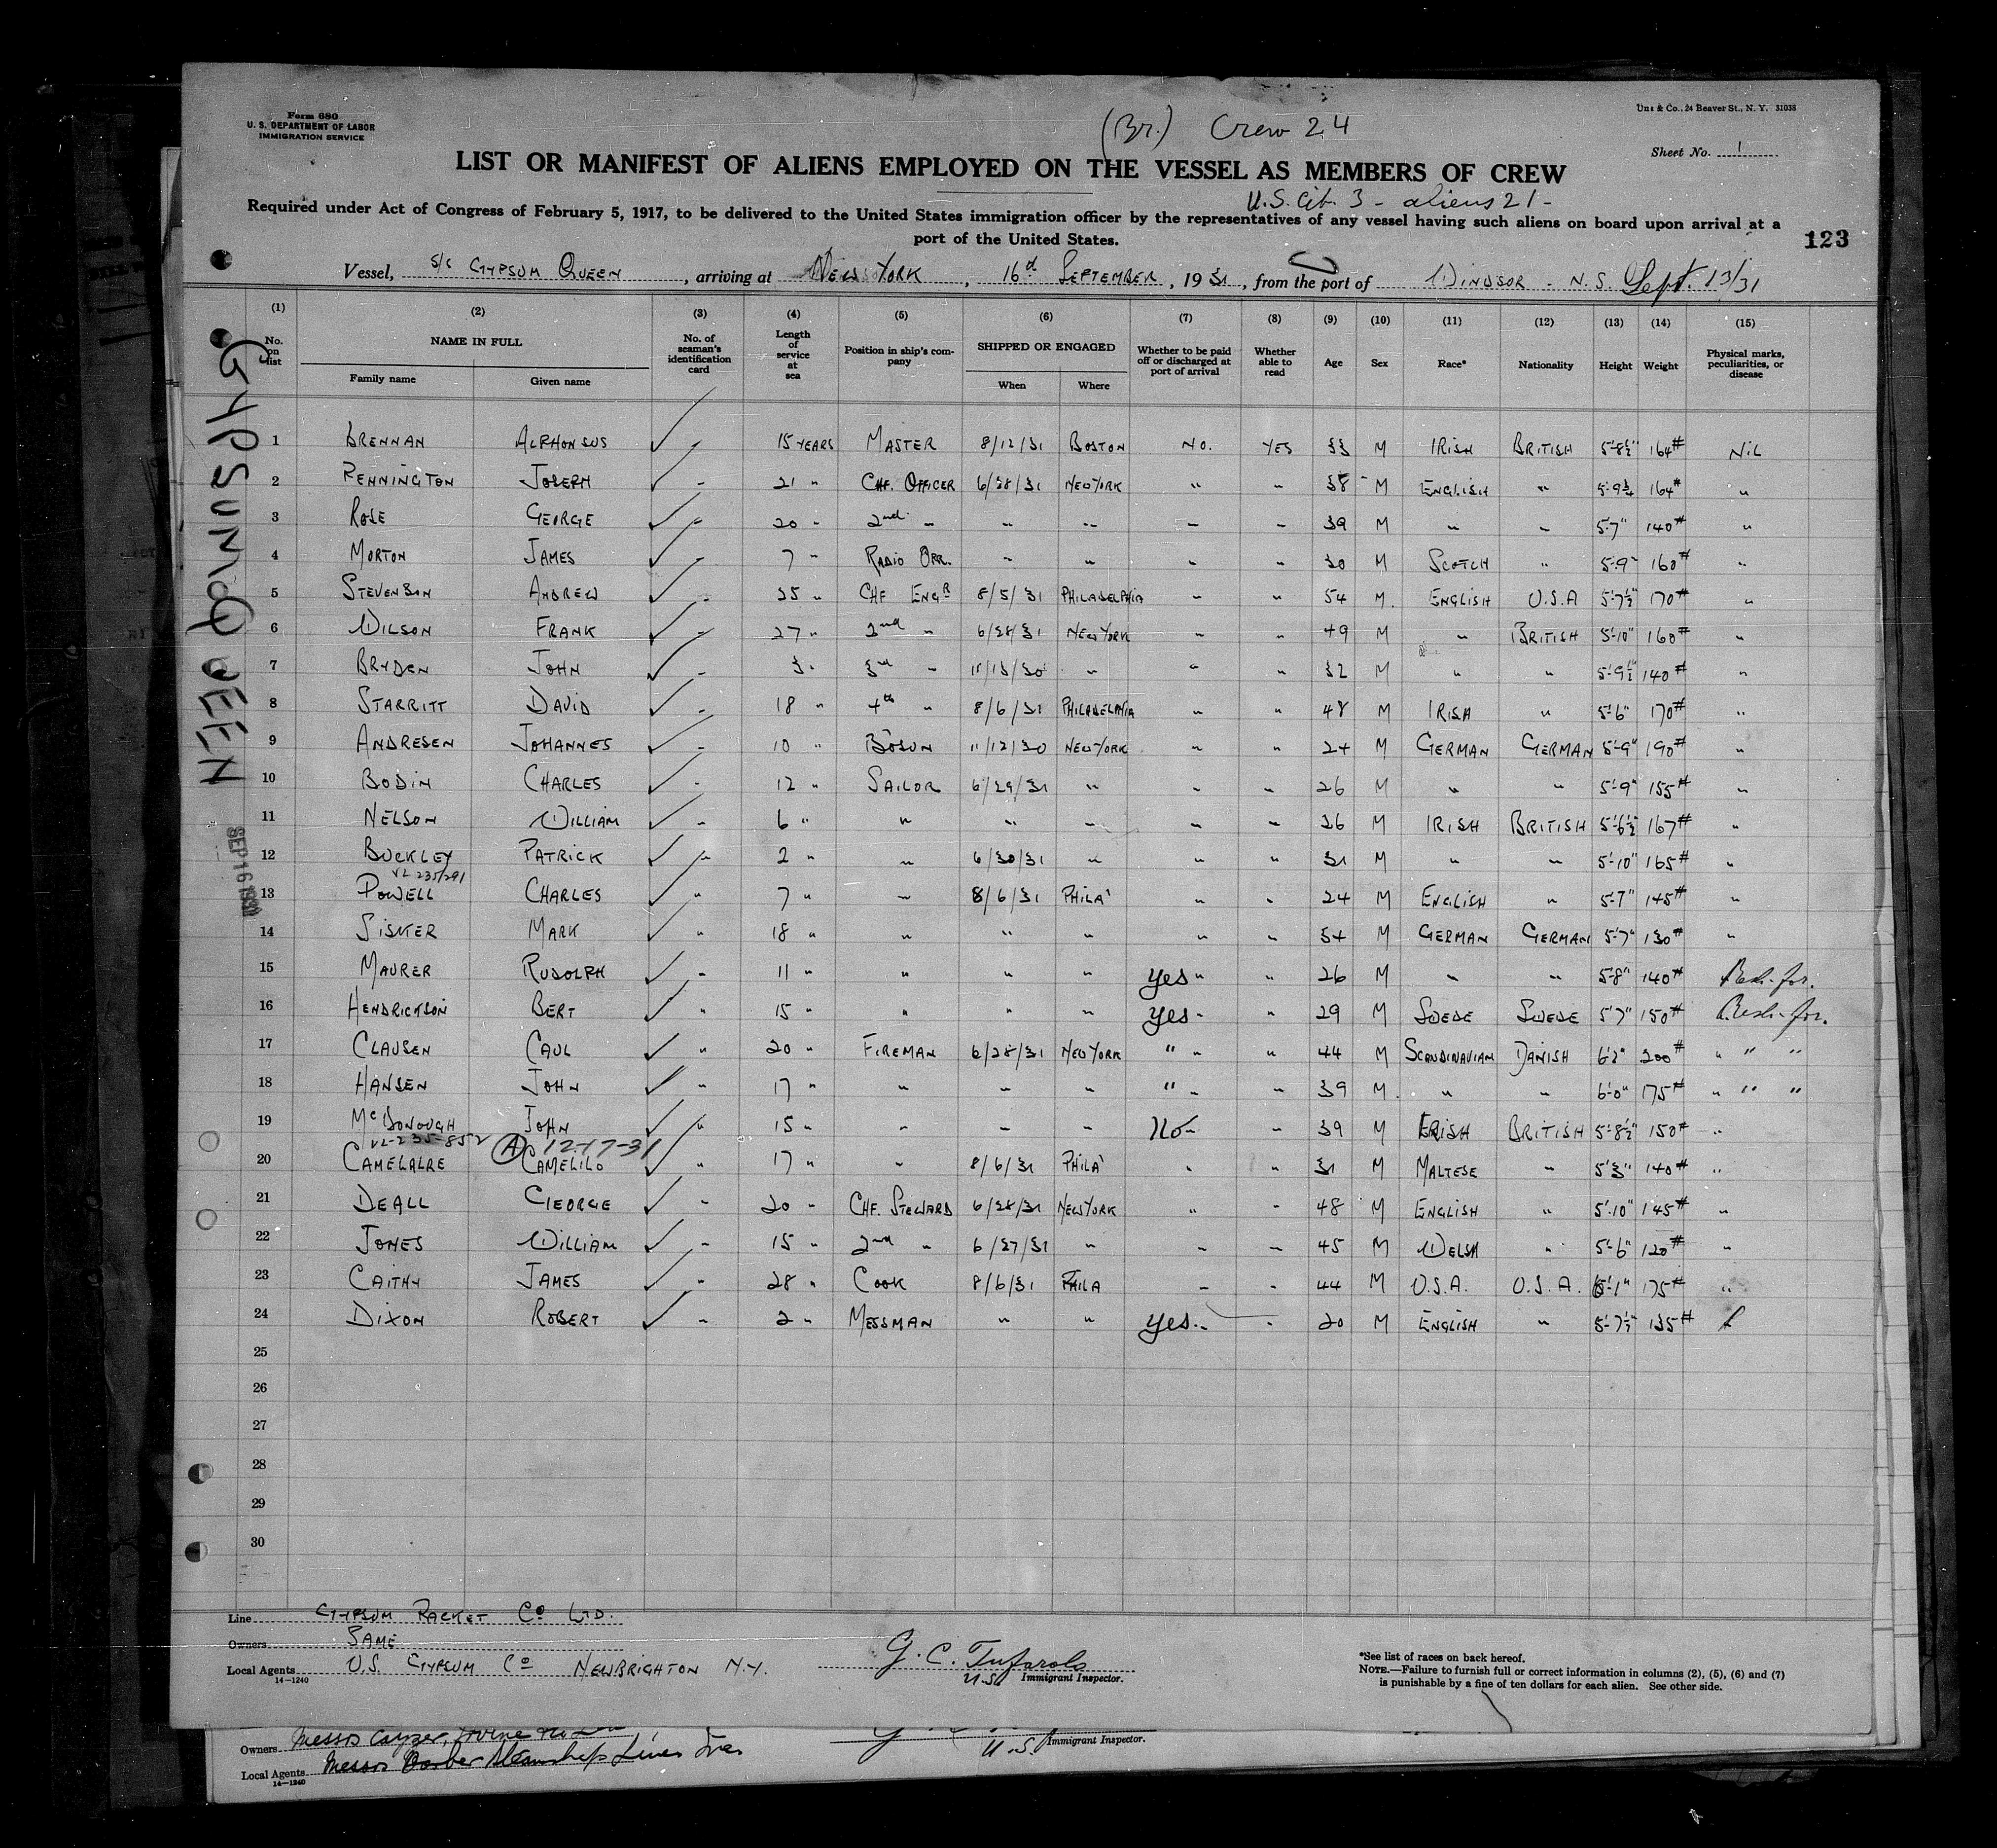 Form 680
U. S. DEPARTMENT OF LABOR
IMMIGRATION SERVICE
(Br.) Crew 24
& Co., 24 Beaver St., N. Y. 31038
Sheet No. 1
LIST OR MANIFEST OF ALIENS EMPLOYED ON THE VESSEL AS MEMBERS OF CREW
U.S. Cit. 3 - aliens 21 -
Required under Act of Congress of February 5, 1917, to be delivered to the United States immigration officer by the representatives of any vessel having such aliens on board upon arrival at a
port of the United States.
123
Vessel, S/S GYPSUM QUEEN, arriving at NEW YORK, 16th SEPTEMBER, 1931, from the port of WINDSOR - N.S. Sept. 13/31
(1) (2) (3) (4) (5) (6) (7) (8) (9) (10) (11) (12) (13) (14) (15)
No. on list NAME IN FULL Family name Given name No. of seaman's identification card Length of service at sea Position in ship's company SHIPPED OR ENGAGED When Where Whether to be paid off or discharged at port of arrival Whether able to read Age Sex Race* Nationality Height Weight Physical marks, peculiarities, or disease
GYPSUM QUEEN
SEP 16 1931
1 BRENNAN ALPHONSUS ✓ - 15 YEARS MASTER 8/12/31 BOSTON NO. YES 33 M IRISH BRITISH 5'-8½" 164# NIL
2 PENNINGTON JOSEPH ✓ - 21 " CHF. OFFICER 6/28/31 NEW YORK " " 38 M ENGLISH " 5-9¾ 164# "
3 ROSE GEORGE ✓ - 20 " 2nd " " " " " 39 M " " 5-7" 140# "
4 MORTON JAMES ✓ - 7 " RADIO OPR. " " " " 30 M SCOTCH " 5-9" 160# "
5 STEVENSON ANDREW ✓ - 25 " CHF ENGR 8/5/31 PHILADELPHIA " " 54 M. ENGLISH U.S.A 5-7½" 170# "
6 WILSON FRANK ✓ - 27 " 2nd " 6/28/31 NEW YORK " " 49 M " BRITISH 5-10" 160# "
7 BRYDEN JOHN ✓ - 3 " 3rd " 11/13/30 " " " 32 M " " 5-9½" 140# "
8 STARRITT DAVID ✓ - 18 " 4th " 8/6/31 PHILADELPHIA " " 48 M IRISH " 5-6" 170# "
9 ANDRESEN JOHANNES ✓ - 10 " BOSUN 11/12/30 NEW YORK " " 24 M GERMAN GERMAN 5-9" 190# "
10 BODIN CHARLES ✓ - 12 " SAILOR 6/29/31 " " " 26 M " " 5'-9" 155# "
11 NELSON WILLIAM ✓ - 6 " " " " " " 26 M IRISH BRITISH 5-6½" 167# "
12 BUCKLEY PATRICK ✓ " 2 " " 6/30/31 " " " 31 M " " 5'-10" 165# "
VL 235/291
13 POWELL CHARLES ✓ " 7 " " 8/6/31 PHILA' " " 24 M ENGLISH " 5-7" 145# "
14 MARK ✓ " 18 " " " " " " 54 M GERMAN GERMAN 5-7" 130# "
15 MAURER RUDOLPH ✓ - 11 " " " " yes " " 26 M " " 5-8" 140#
16 HENDRICKSON BERT ✓ " 15 " " " " yes - " 29 M SWEDE SWEDE 5'7" 150#
17 CLAUSEN CAUL ✓ " 20 " FIREMAN 6/28/31 NEW YORK " " " 44 M SCANDINAVIAN DANISH 6'2" 200# " " "
18 HANSEN JOHN ✓ " 17 " " " " " " " 39 M " " 6-0" 175# " " "
19 McDONOUGH JOHN ✓ " 15 " " " " No - " 39 M IRISH BRITISH 5'-8½" 150# "
VL-235-852 (A) 12-17-31
20 CAMELALRE CAMELILO ✓ " 17 " " 8/6/31 PHILA' " " 31 M MALTESE " 5'3" 140# "
21 DEALL GEORGE ✓ - 20 " CHF. STEWARD 6/28/31 NEW YORK " " 48 M ENGLISH " 5'-10" 145# "
22 JONES WILLIAM ✓ - 15 " 2nd " 6/27/31 " " " 45 M WELSH " 5'-6" 120# "
23 CAITHY JAMES ✓ " 28 " COOK 8/6/31 PHILA " " 44 M U.S.A. U.S.A. 5'-1" 175# "
24 DIXON ROBERT ✓ - 2 " MESSMAN " " yes - " 20 M ENGLISH " 5-7½" 135#
25
26
27
28
29
30
Line GYPSUM PACKET Co LTD.
Owners SAME
Local Agents U.S. GYPSUM Co NEWBRIGHTON N.Y.
14-1240
G. C. Tufarolo
U.S. Immigrant Inspector.
*See list of races on back hereof.
NOTE.—Failure to furnish full or correct information in columns (2), (5), (6) and (7)
is punishable by a fine of ten dollars for each alien. See other side.
Owners Messrs Cayzer, Irvine
Local Agents Messrs Barber Steamship Lines Inc
14-1240
U.S. Immigrant Inspector.